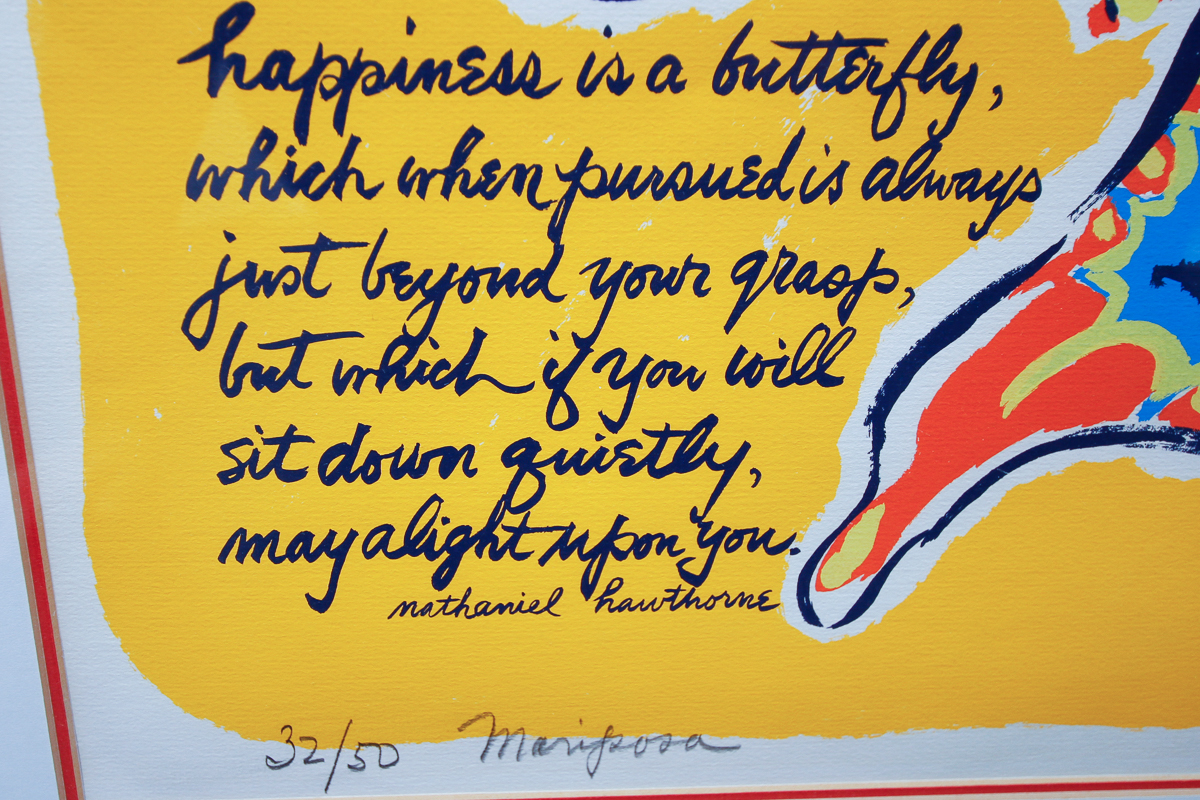 happiness is a butterfly,
which when pursued is always
just beyond your grasp,
but which if you will
sit down quietly,
may alight upon you.
nathaniel hawthorne
32/50 Mariposa